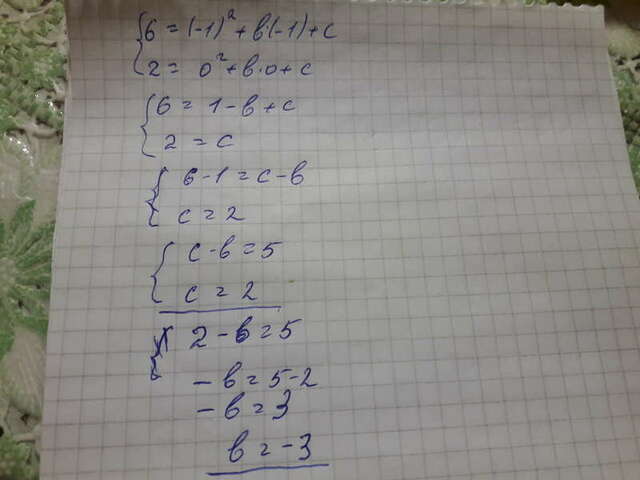 {6 = (-1)² + b(-1) + c
{2 = 0² + b·0 + c
{6 = 1 - b + c
{2 = c
{6 - 1 = c - b
{c = 2
{c - b = 5
{c = 2
2 - b = 5
- b = 5 - 2
- b = 3
b = -3